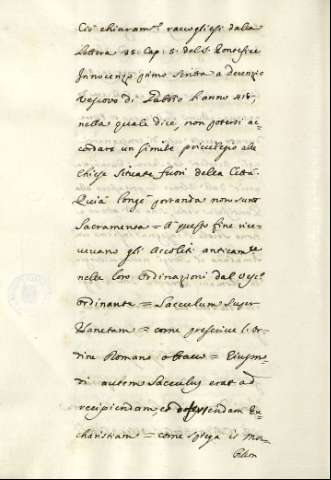 Ciò chiaramte raccogliesi dalla
Lettera 25. Cap. 5. del S. Pontefice
Innocenzo primo scritta a Decenzio
Vescovo di Gubbio l'anno 416,
nella quale dice, non potersi ac=
cordare un simile privilegio alle
Chiese situate fuori della Città.
Quia longe portanda non sunt
Sacramenta = A questo fine rice=
vevano gli Accoliti anticamte
nelle loro Ordinazioni dal
Ordinante = Sacculum super
Planetam = come prescrive l'Or=
dine Romano = Eiusmo=
di autem Sacculus erat ad
recipiendam, et deferendam Eu=
charistiam = come spiega il Ma=
billon